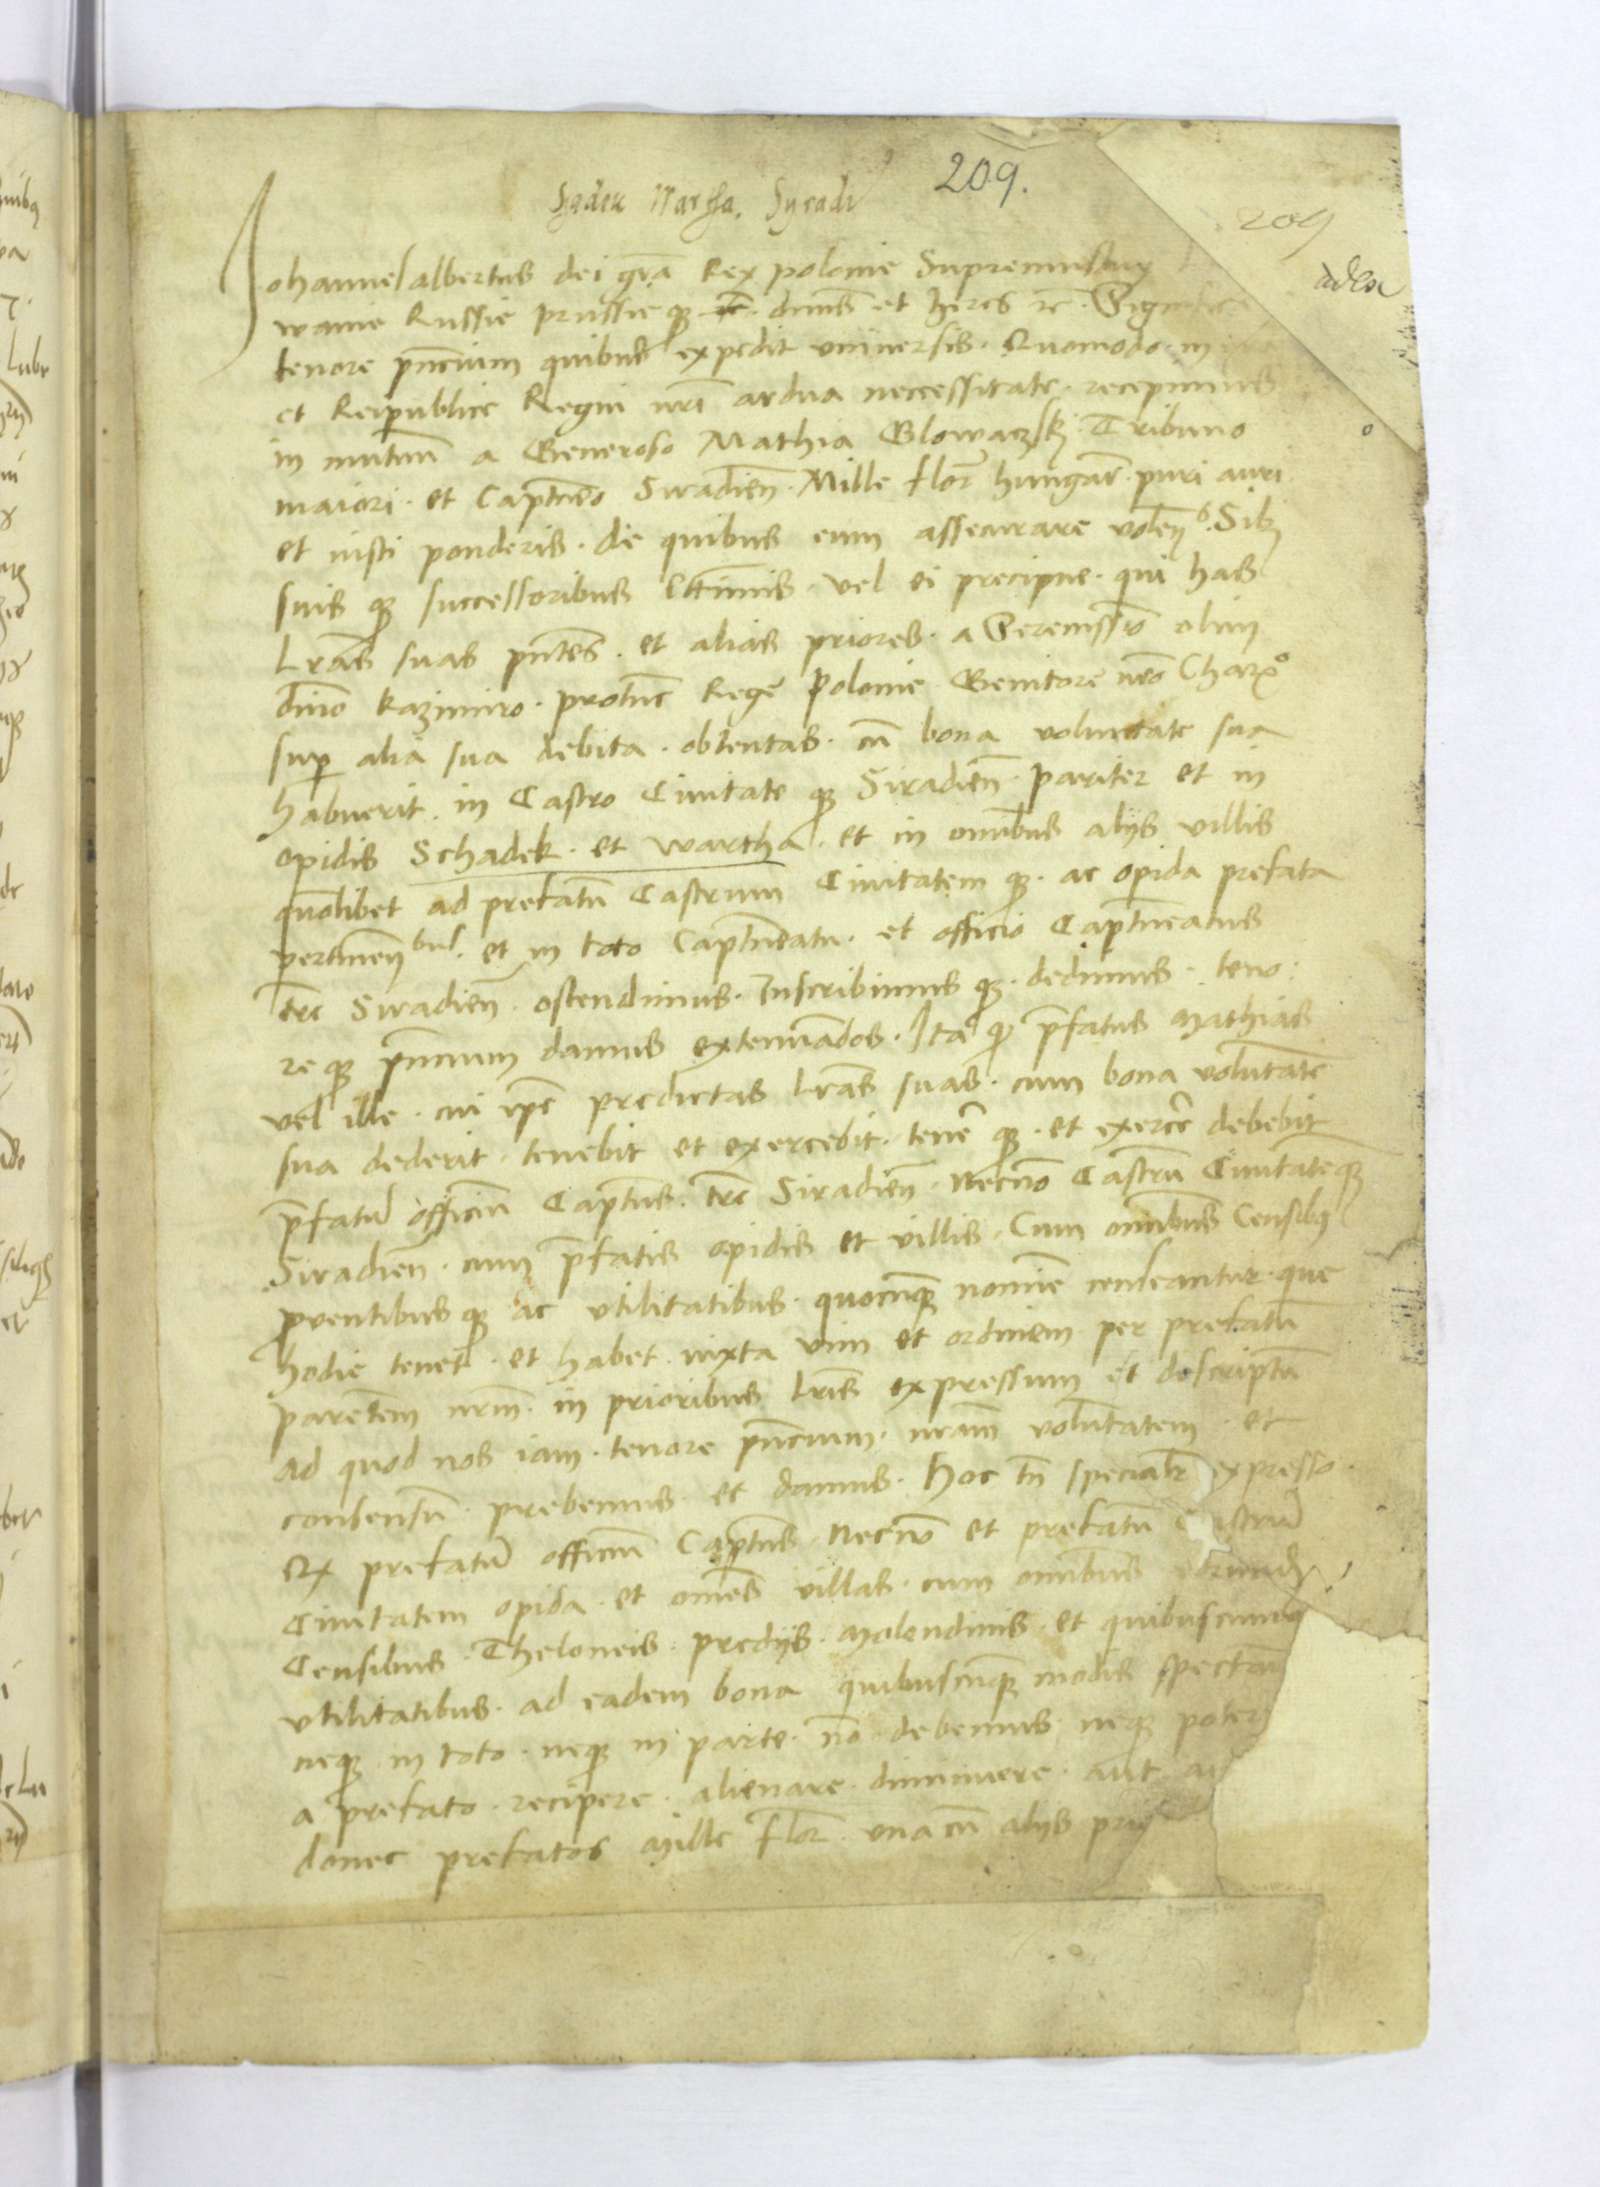 209.
Szadek Wartha. Syradi
209
Johannes albertus dei gra Rex polonie Supremus dux
wanie Russie prussie q3 dnus et heres rc. Signific
tenore pntium quibus expedit universis. Quomodo in
et Reipublice Regni nri ardua neccessitate. recepimus
in mutuum a Generoso Mathia Glowaczsky Tribuno
maiori. et Captneo Siradien. Mille flor hungar. puri auri
et iusti ponderis. de quibus eum assecurare volen. Sibi
suis q3 successoribus lttimis vel ei precipue. qui has
Lras suas pntes. et alias priores. a Serenissio olim
dno Kazimiro. protunc Rege polonie Genitore nro Charo
sup alia sua debita. obtentas. cu bona voluntate sua
habuerit. in Castro Civitate q3 Siradien. pariter et in
opidis Schadek. et wartha. et in omnibus alys villis
quolibet ad prefatu Castrum Civitatem q3. ac opida prefata
pertinen bus. et in toto Captneatu. et officio Captneatus
tre Siradien. ostendimus. Inscribimus q3. dedimus. teno
re q3 pntium damus extenuados. Ita q pfatus Mathias
vel ille. cui ipe predictas Lras suas. cum bona voluntate
sua dederit. tenebit et exercebit. tene q3. et exerce debebit
pfatu officiu Captus. tre Siradien. Necno Castru Civitateq3
Siradien. cum pfatis opidis et villis. Cum omnibus Censibq
proventibus q3 ac utilitatibus. quocuq3 nomine censeantur. que
hodie tenet. et habet. iuxta vim et ordinem per prefatu
parentem nrm. in prioribus Lris expressum et descriptu
ad quod nos iam. tenore pntium. nram voluntatem. et
consensu prebemus et damus. Hoc tn specialr expresso.
Qz prefatu officiu Captus. Necno et prefatu Castru
Civitatem opida. et omes villas. cum omnibus
Censibus. Theloneis. predys. Molendinis. et quibuscunq
utilitatibus. ad eadem bona quibuscuq3 modis spectan
neq3 in toto. neq3 in parte. no debemus neq3 poter
a prefato. recipere. alienare. diminuere. aut
donec prefatos Mille flor. una cu alys